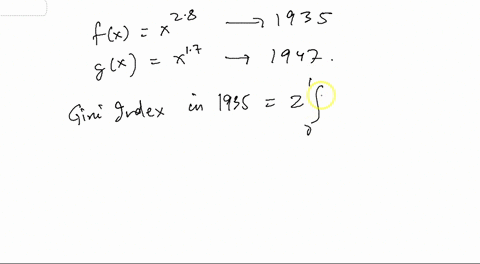 f(x) = x^2.8 → 1935
g(x) = x^1.7 → 1947.
Gini Index in 1935 = 2 ∫_0^1